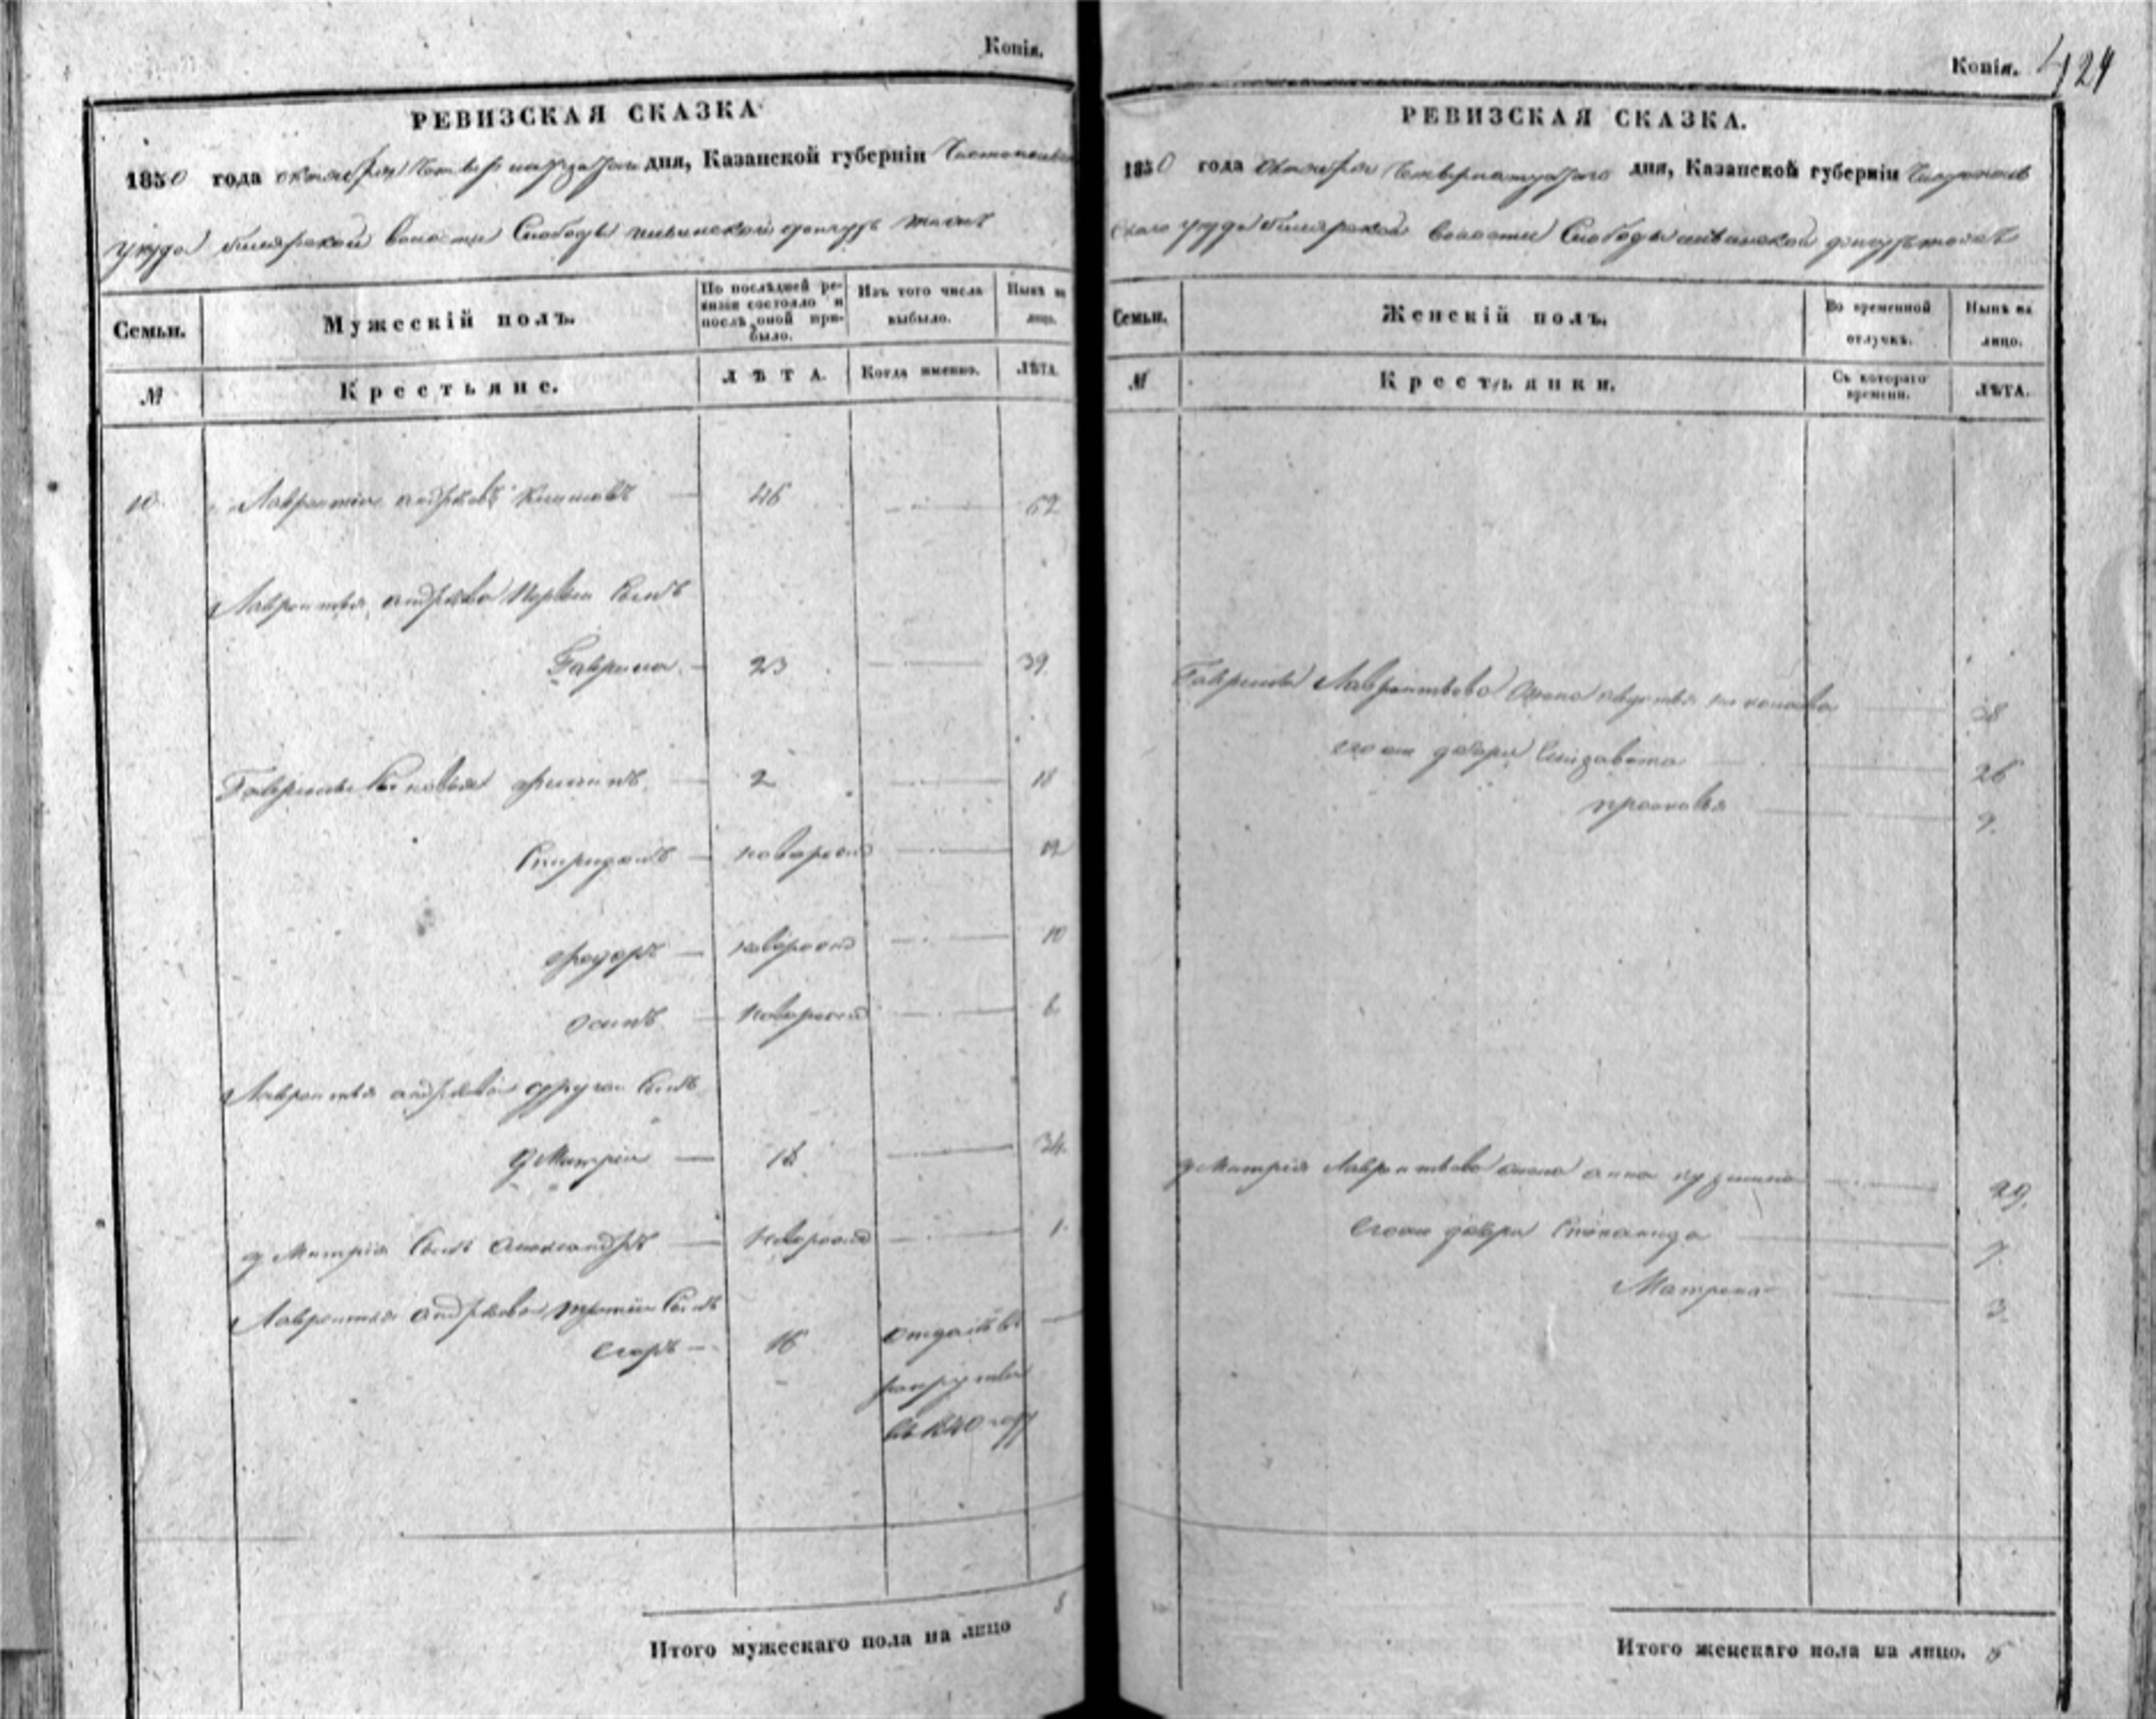 Копія.
РЕВИЗСКАЯ СКАЗКА
1850 года октября четвертнадцатаго дня, Казанской губерніи
уезда Билярской волости Слободы
Семьи.
Мужескій полъ.
По послѣдней ре-
визіи состояло и
послѣ оной при-
было.
Изъ того числа
выбыло.
Нынѣ на
лицо.
№
Крестьяне.
ЛѢТА.
Когда именно.
ЛѢТА.
10 Лаврентій андрѣевъ 46 62
Лаврентья андрѣева первой сынъ
Гаврила 23 39
Гаврилы сыновья филипъ 2 18
Спиридонъ новорожд 12
федоръ новорожд 10
осипъ новорожд 6
Лаврентья андрѣева другой сынъ
дмитрей 18 34
дмитрія сынъ александръ новорожд 1
Лаврентья андрѣева третій сынъ
егоръ 16 отданъ въ
рекруты
въ 1840 году
Итого мужескаго пола на лицо 8
Копія. 424
РЕВИЗСКАЯ СКАЗКА.
1850 года октября дня, Казанской губерніи Чистополь
скаго уезда Билярской волости Слободы
Семьи.
Женскій полъ.
Во временной
отлучкѣ.
Нынѣ на
лицо.
№
Крестьянки.
Съ котораго
времени.
ЛѢТА.
Гаврилы Лаврентьева жена 38
его дочери Елизавета
прасковья 9
дмитрія Лаврентьева жена анна 29
его дочери Степанида 7
Матрена 3
Итого женскаго пола на лицо. 5